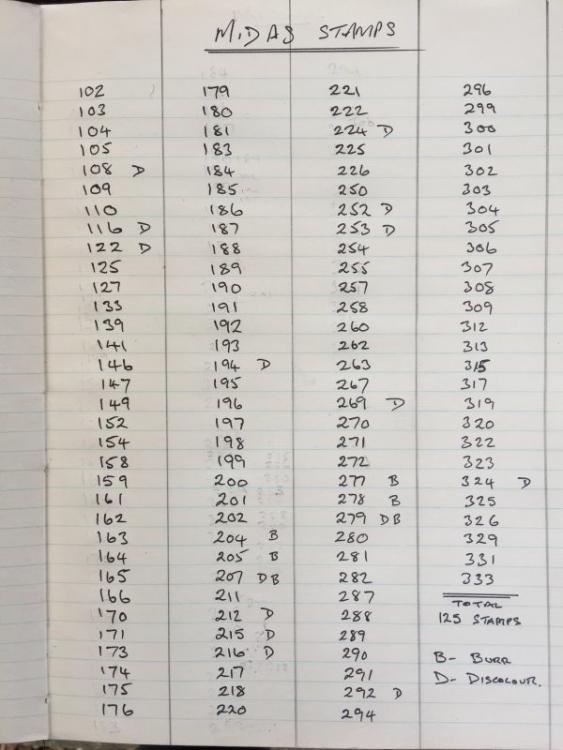 MIDAS STAMPS
102 179 221 296
103 180 222 299
104 181 224 D 300
105 183 225 301
108 D 184 226 302
109 185 250 303
110 186 252 D 304
116 D 187 253 D 305
122 D 188 254 306
125 189 255 307
127 190 257 308
133 191 258 309
139 192 260 312
141 193 262 313
146 194 D 263 315
147 195 267 317
149 196 269 D 319
152 197 270 320
154 198 271 322
158 199 272 323
159 200 277 B 324 D
161 201 278 B 325
162 202 279 DB 326
163 204 B 280 329
164 205 B 281 331
165 207 DB 282 333
166 211 287 TOTAL
170 212 D 288 125 STAMPS
171 215 D 289
173 216 D 290 B- BURR
174 217 291 D- DISCOLOUR.
175 218 292 D
176 220 294